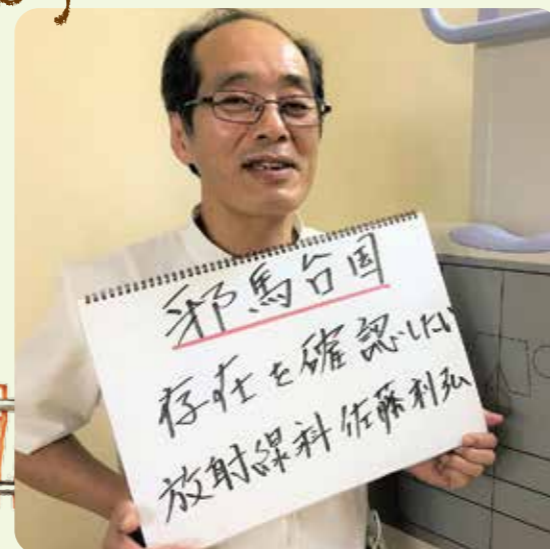 邪馬台国
存在を確認したい
放射線科 佐藤利弘